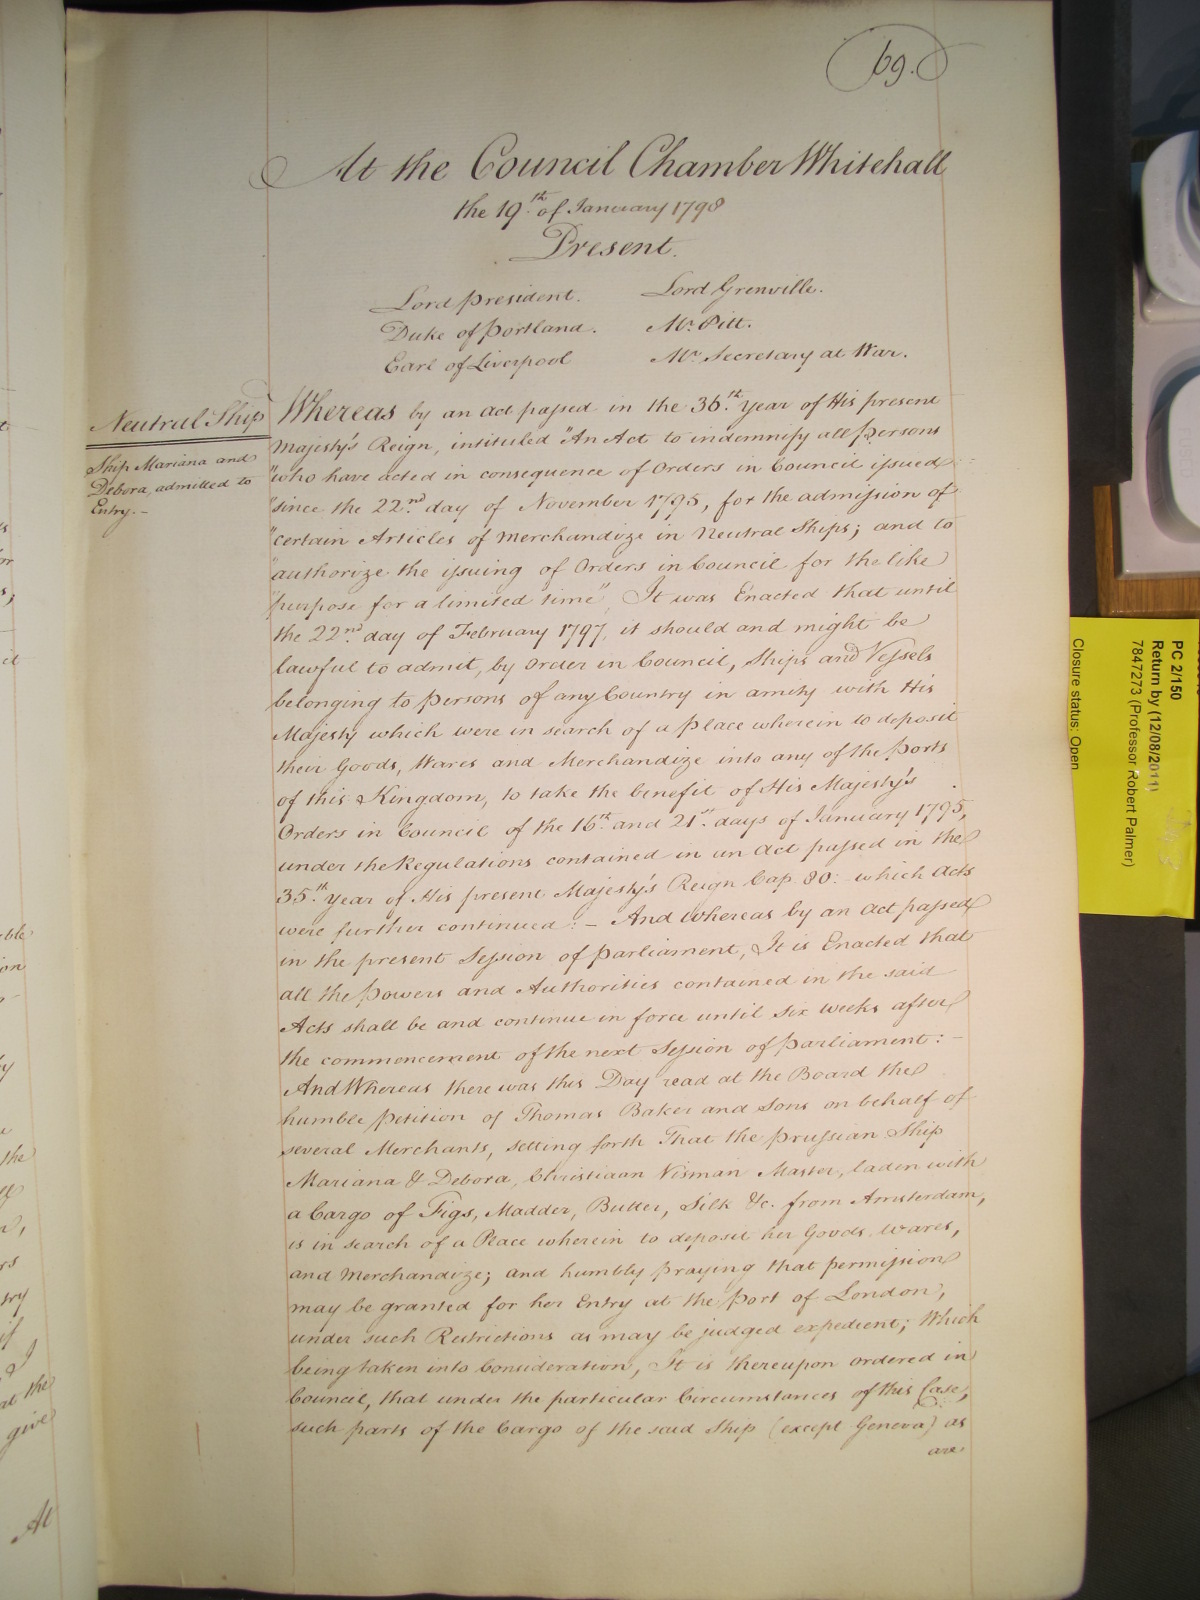 69.
At the Council Chamber Whitehall
the 19th of January 1798
Present.
Lord President. Lord Grenville.
Duke of Portland. Mr. Pitt.
Earl of Liverpool Mr. Secretary at War.
Neutral Ship
Ship Mariana and
Debora, admitted to
Entry.-
Whereas by an act passed in the 36th. Year of His present
Majesty's Reign, intituled "An Act to indemnify all Persons
"who have acted in consequence of Orders in Council issued
"since the 22nd. day of November 1795, for the admission of
"certain Articles of Merchandize in Neutral Ships; and to
"authorize the issuing of Orders in Council for the like
"purpose for a limited time" It was Enacted that until
the 22nd. day of February 1797, it should and might be
lawful to admit, by Order in Council, Ships and Vessels
belonging to Persons of any Country in amity with His
Majesty which were in search of a Place wherein to deposit
their Goods, Wares and Merchandize into any of the Ports
of this Kingdom, to take the benefit of His Majesty's
Orders in Council of the 16th. and 21st. days of January 1795,
under the Regulations contained in an Act passed in the
35th. Year of His present Majesty's Reign Cap 80: which Acts
were further continued:- And Whereas by an Act passed
in the present Session of Parliament, It is Enacted that
all the Powers and Authorities contained in the said
Acts shall be and continue in force until six weeks after
the commencement of the next Session of Parliament:-
And Whereas there was this Day read at the Board the
humble Petition of Thomas Baker and Sons on behalf of
several Merchants, setting forth That the Prussian Ship
Mariana & Debora, Christiaan Visman Master, laden with
a Cargo of Figs, Madder, Butter, Silk &c. from Amsterdam,
is in search of a Place wherein to deposit her Goods, Wares,
and Merchandize; and humbly praying that permission
may be granted for her Entry at the Port of London,
under such Restrictions as may be judged expedient; Which
being taken into Consideration, It is thereupon ordered in
Council, that under the particular Circumstances of this Case,
such parts of the Cargo of the said Ship (except Geneva) as
are
PC 2/150
Return by (12/08/2011)
7847273 (Professor Robert Palmer)
Closure status: Open
the
at the
give
At